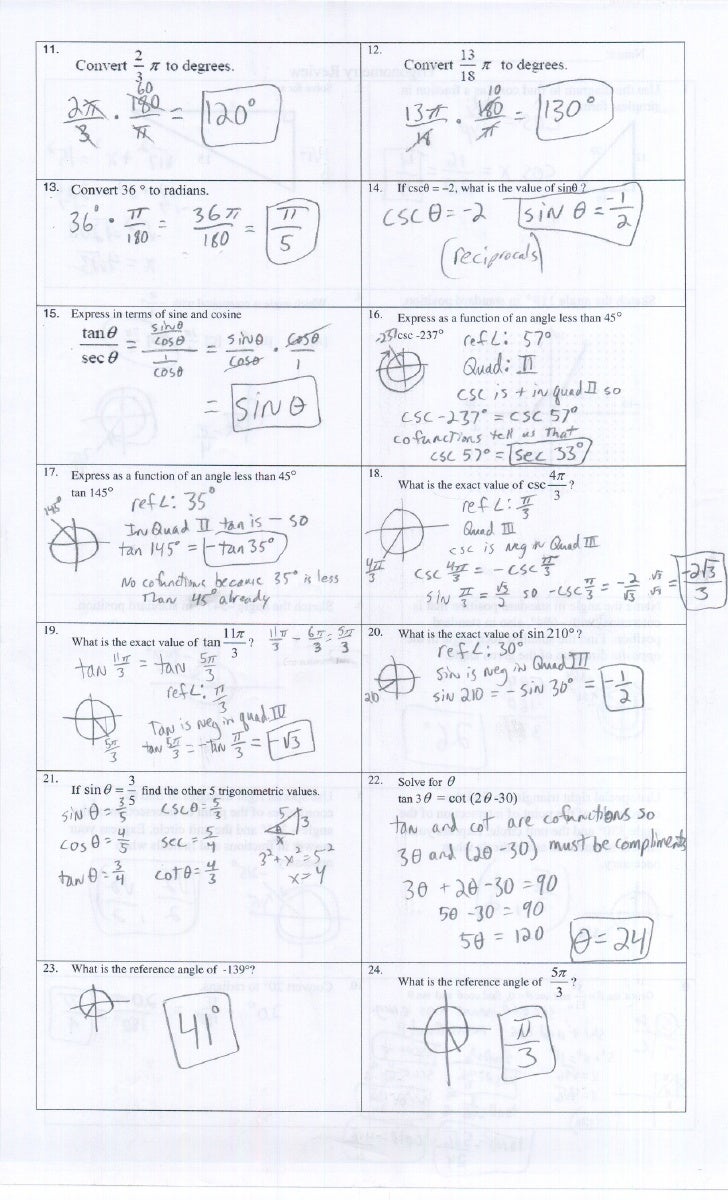 11.
Convert 2/3 π to degrees.
2π/3 · 180/π = 120°
60
12.
Convert 13/18 π to degrees.
10
13π/18 · 180/π = 130°
13. Convert 36 ° to radians.
36° · π/180 = 36π/180 = π/5
14. If cscθ = -2, what is the value of sinθ ?
CSC θ = -2 sin θ = -1/2
(reciprocals)
15. Express in terms of sine and cosine
tan θ/sec θ = (sinθ/cosθ)/(1/cosθ) = sinθ/cosθ · cosθ/1
= sin θ
16. Express as a function of an angle less than 45°
csc -237° ref∠: 57°
Quad: II
CSC is + in quad II so
CSC -237° = CSC 57°
cofunctions tell us That
csc 57° = sec 33°
17. Express as a function of an angle less than 45°
tan 145° ref∠: 35°
145°
In Quad II tan is – so
tan 145° = -tan 35°
No cofunctions because 35° is less
Than 45° already
18.
What is the exact value of csc 4π/3 ?
ref∠: π/3
Quad III
csc is neg in Quad III
4π/3
csc 4π/3 = -csc π/3
sin π/3 = √3/2 so -csc π/3 = -2/√3 · √3/√3 = -2√3/3
19.
What is the exact value of tan 11π/3 ? 11π/3 - 6π/3 = 5π/3
tan 11π/3 = tan 5π/3
ref∠: π/3
Tan is neg in quad. IV
5π/3
tan 5π/3 = -tan π/3 = -√3
20. What is the exact value of sin 210° ?
ref∠: 30°
Sin is neg in Quad III
210
sin 210 = - sin 30° = -1/2
21.
If sin θ = 3/5 find the other 5 trigonometric values.
sin θ = 3/5 csc θ = 5/3
5 3
θ
x
cos θ = 4/5 sec = 5/4
3² + x² = 5²
tan θ = 3/4 cot θ = 4/3
x = 4
22. Solve for θ
tan 3θ = cot (2θ -30)
tan and cot are cofunctions so
3θ and (2θ -30) must be compliments
3θ + 2θ -30 = 90
5θ -30 = 90
5θ = 120 θ = 24
23. What is the reference angle of -139°?
41°
24.
What is the reference angle of 5π/3 ?
π/3